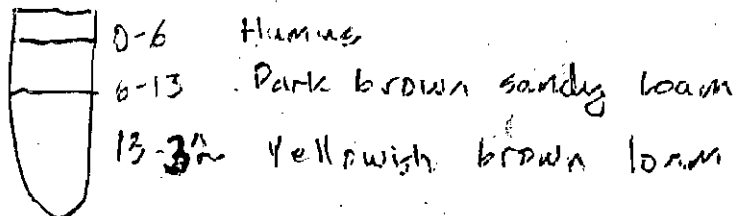 0-6 Humus
6-13 Dark brown sandy loam
13- Yellowish brown loam